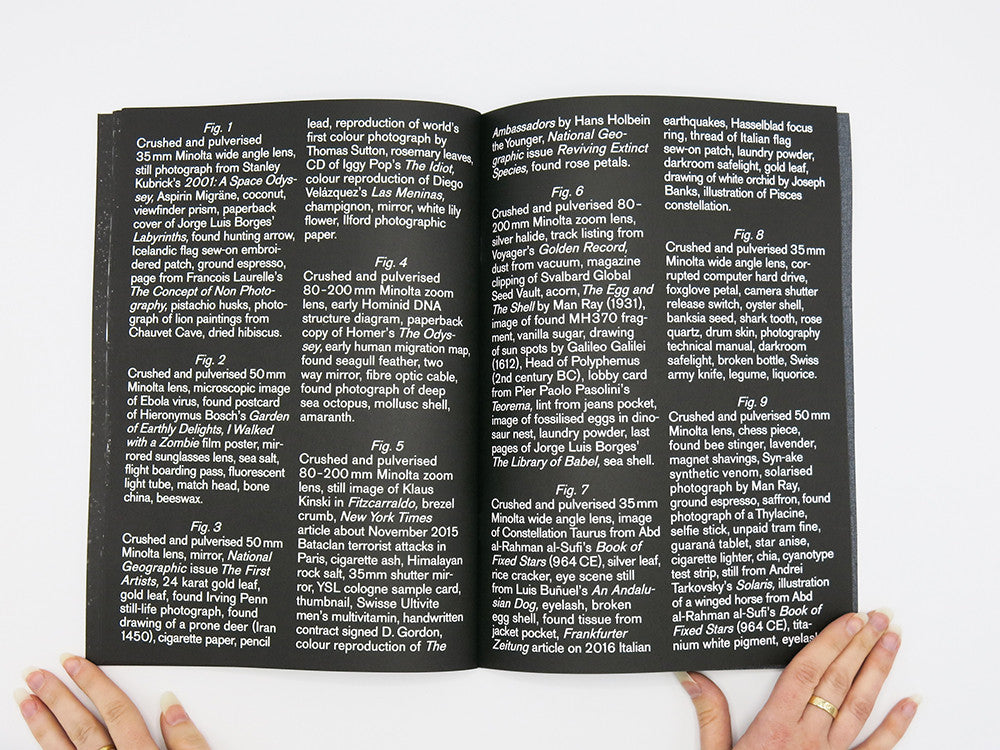 Fig. 1
Crushed and pulverised
35 mm Minolta wide angle lens,
still photograph from Stanley
Kubrick's 2001: A Space Odys-
sey, Aspirin Migräne, coconut,
viewfinder prism, paperback
cover of Jorge Luis Borges'
Labyrinths, found hunting arrow,
Icelandic flag sew-on embroi-
dered patch, ground espresso,
page from Francois Laurelle's
The Concept of Non Photo-
graphy, pistachio husks, photo-
graph of lion paintings from
Chauvet Cave, dried hibiscus.
Fig. 2
Crushed and pulverised 50 mm
Minolta lens, microscopic image
of Ebola virus, found postcard
of Hieronymus Bosch's Garden
of Earthly Delights, I Walked
with a Zombie film poster, mir-
rored sunglasses lens, sea salt,
flight boarding pass, fluorescent
light tube, match head, bone
china, beeswax.
Fig. 3
Crushed and pulverised 50 mm
Minolta lens, mirror, National
Geographic issue The First
Artists, 24 karat gold leaf,
gold leaf, found Irving Penn
still-life photograph, found
drawing of a prone deer (Iran
1450), cigarette paper, pencil
lead, reproduction of world's
first colour photograph by
Thomas Sutton, rosemary leaves,
CD of Iggy Pop's The Idiot,
colour reproduction of Diego
Velázquez's Las Meninas,
champignon, mirror, white lily
flower, Ilford photographic
paper.
Fig. 4
Crushed and pulverised
80-200 mm Minolta zoom
lens, early Hominid DNA
structure diagram, paperback
copy of Homer's The Odys-
sey, early human migration map,
found seagull feather, two
way mirror, fibre optic cable,
found photograph of deep
sea octopus, mollusc shell,
amaranth.
Fig. 5
Crushed and pulverised
80-200 mm Minolta zoom
lens, still image of Klaus
Kinski in Fitzcarraldo, brezel
crumb, New York Times
article about November 2015
Bataclan terrorist attacks in
Paris, cigarette ash, Himalayan
rock salt, 35mm shutter mir-
ror, YSL cologne sample card,
thumbnail, Swisse Ultivite
men's multivitamin, handwritten
contract signed D. Gordon,
colour reproduction of The
Ambassadors by Hans Holbein
the Younger, National Geo-
graphic issue Reviving Extinct
Species, found rose petals.
Fig. 6
Crushed and pulverised 80-
200 mm Minolta zoom lens,
silver halide, track listing from
Voyager's Golden Record,
dust from vacuum, magazine
clipping of Svalbard Global
Seed Vault, acorn, The Egg and
The Shell by Man Ray (1931),
image of found MH370 frag-
ment, vanilla sugar, drawing
of sun spots by Galileo Galilei
(1612), Head of Polyphemus
(2nd century BC), lobby card
from Pier Paolo Pasolini's
Teorema, lint from jeans pocket,
image of fossilised eggs in dino-
saur nest, laundry powder, last
pages of Jorge Luis Borges'
The Library of Babel, sea shell.
Fig. 7
Crushed and pulverised 35 mm
Minolta wide angle lens, image
of Constellation Taurus from Abd
al-Rahman al-Sufi's Book of
Fixed Stars (964 CE), silver leaf,
rice cracker, eye scene still
from Luis Buñuel's An Andalu-
sian Dog, eyelash, broken
egg shell, found tissue from
jacket pocket, Frankfurter
Zeitung article on 2016 Italian
earthquakes, Hasselblad focus
ring, thread of Italian flag
sew-on patch, laundry powder,
darkroom safelight, gold leaf,
drawing of white orchid by Joseph
Banks, illustration of Pisces
constellation.
Fig. 8
Crushed and pulverised 35 mm
Minolta wide angle lens, cor-
rupted computer hard drive,
foxglove petal, camera shutter
release switch, oyster shell,
banksia seed, shark tooth, rose
quartz, drum skin, photography
technical manual, darkroom
safelight, broken bottle, Swiss
army knife, legume, liquorice.
Fig. 9
Crushed and pulverised 50 mm
Minolta lens, chess piece,
found bee stinger, lavender,
magnet shavings, Syn-ake
synthetic venom, solarised
photograph by Man Ray,
ground espresso, saffron, found
photograph of a Thylacine,
selfie stick, unpaid tram fine,
guaraná tablet, star anise,
cigarette lighter, chia, cyanotype
test strip, still from Andrei
Tarkovsky's Solaris, illustration
of a winged horse from Abd
al-Rahman al-Sufi's Book of
Fixed Stars (964 CE), tita-
nium white pigment,